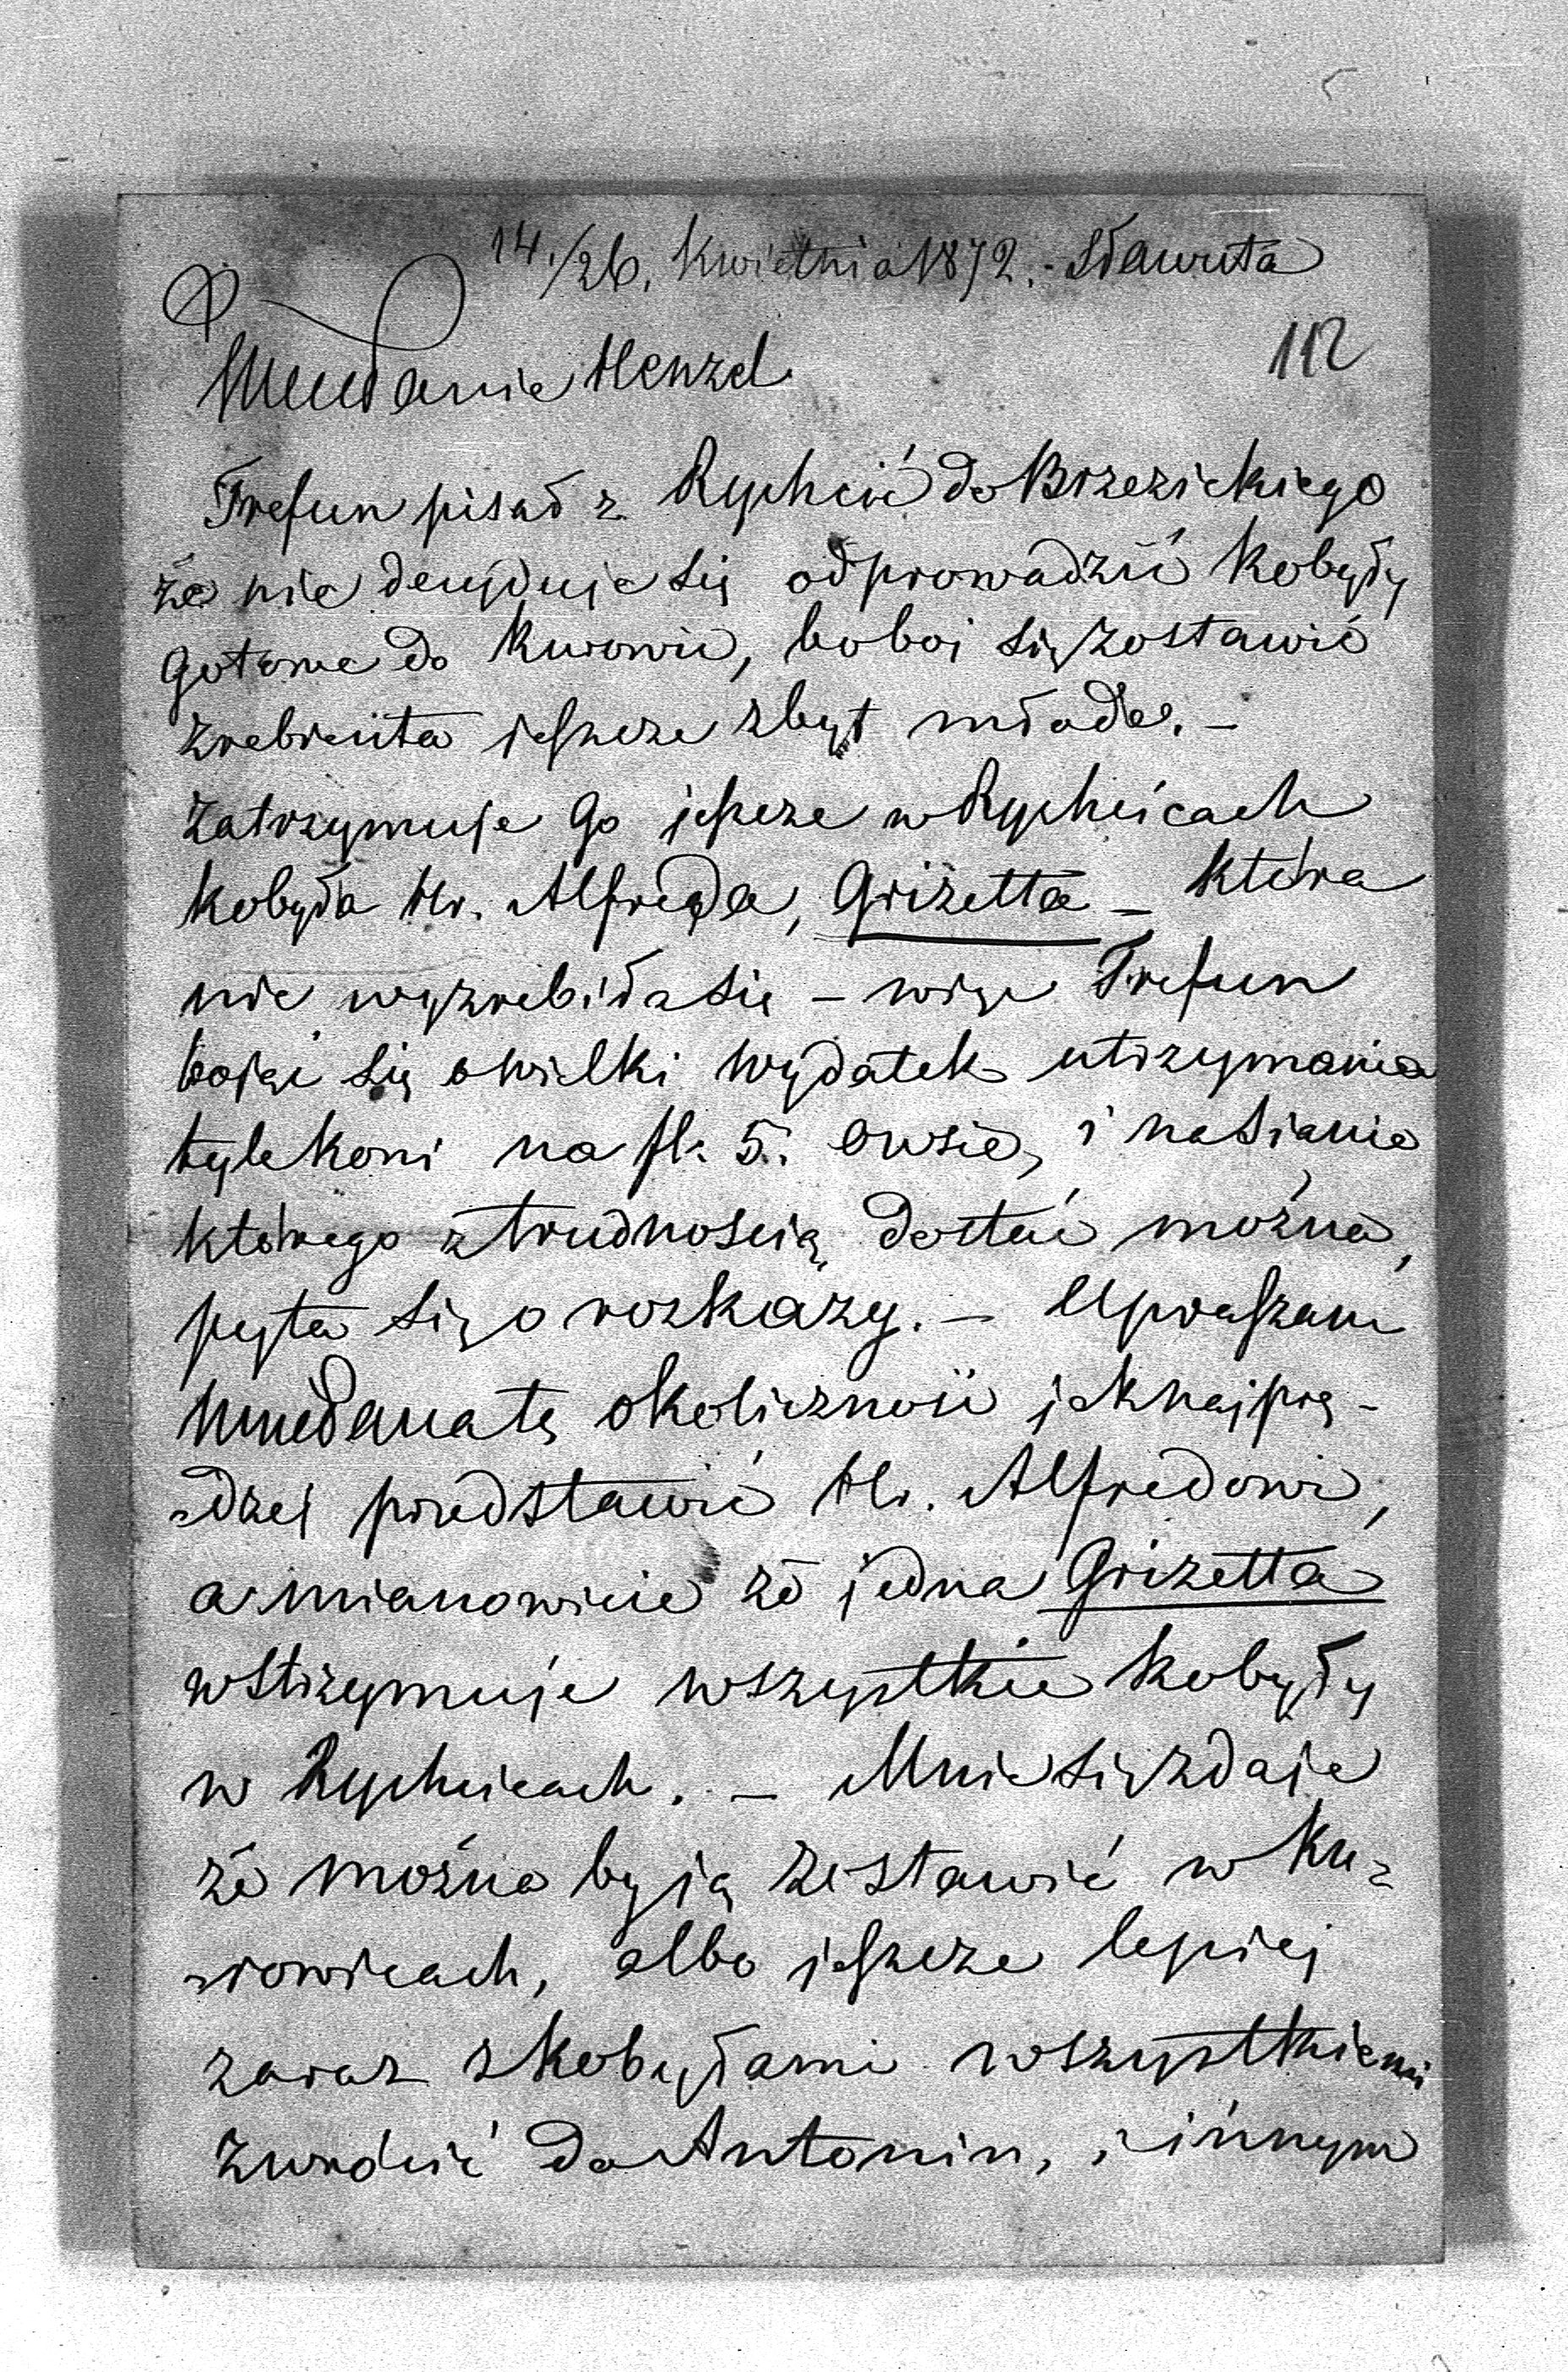 14./26. Kwietnia 1872. - Sławuta
112
Panie Henzel
Trefun pisał z Rychcic do Brzezickiego
że nie decyduje się odprowadzić Kobyły
gotowe do Kurowic, bo boi się zostawić
zrebienta jeszcze zbyt młode. -
Zatrzymuje go jeszcze w Rychcicach
Kobyła Hr. Alfreda, Grizetta - która
nie wyzrebiła się - więc Trefun
bojąc się o wielki wydatek utrzymania
tyle koni na fl. 5. owsie, i na sianie
którego z trudnością dostać można,
pyta się o rozkazy. - Upraszam
WMPana tę okoliczność jaknajprę-
-dzej przedstawić Hr. Alfredowi,
a mianowicie że jedna Grizetta
wstrzymuje wszystkie Kobyły
w Rychcicach. - Mnie się zdaje
że można by ją zostawić w Ku-
-rowicach, albo jeszcze lepiej
zaraz z kobyłami wszystkiemi
zwrócić do Antonin, i innym